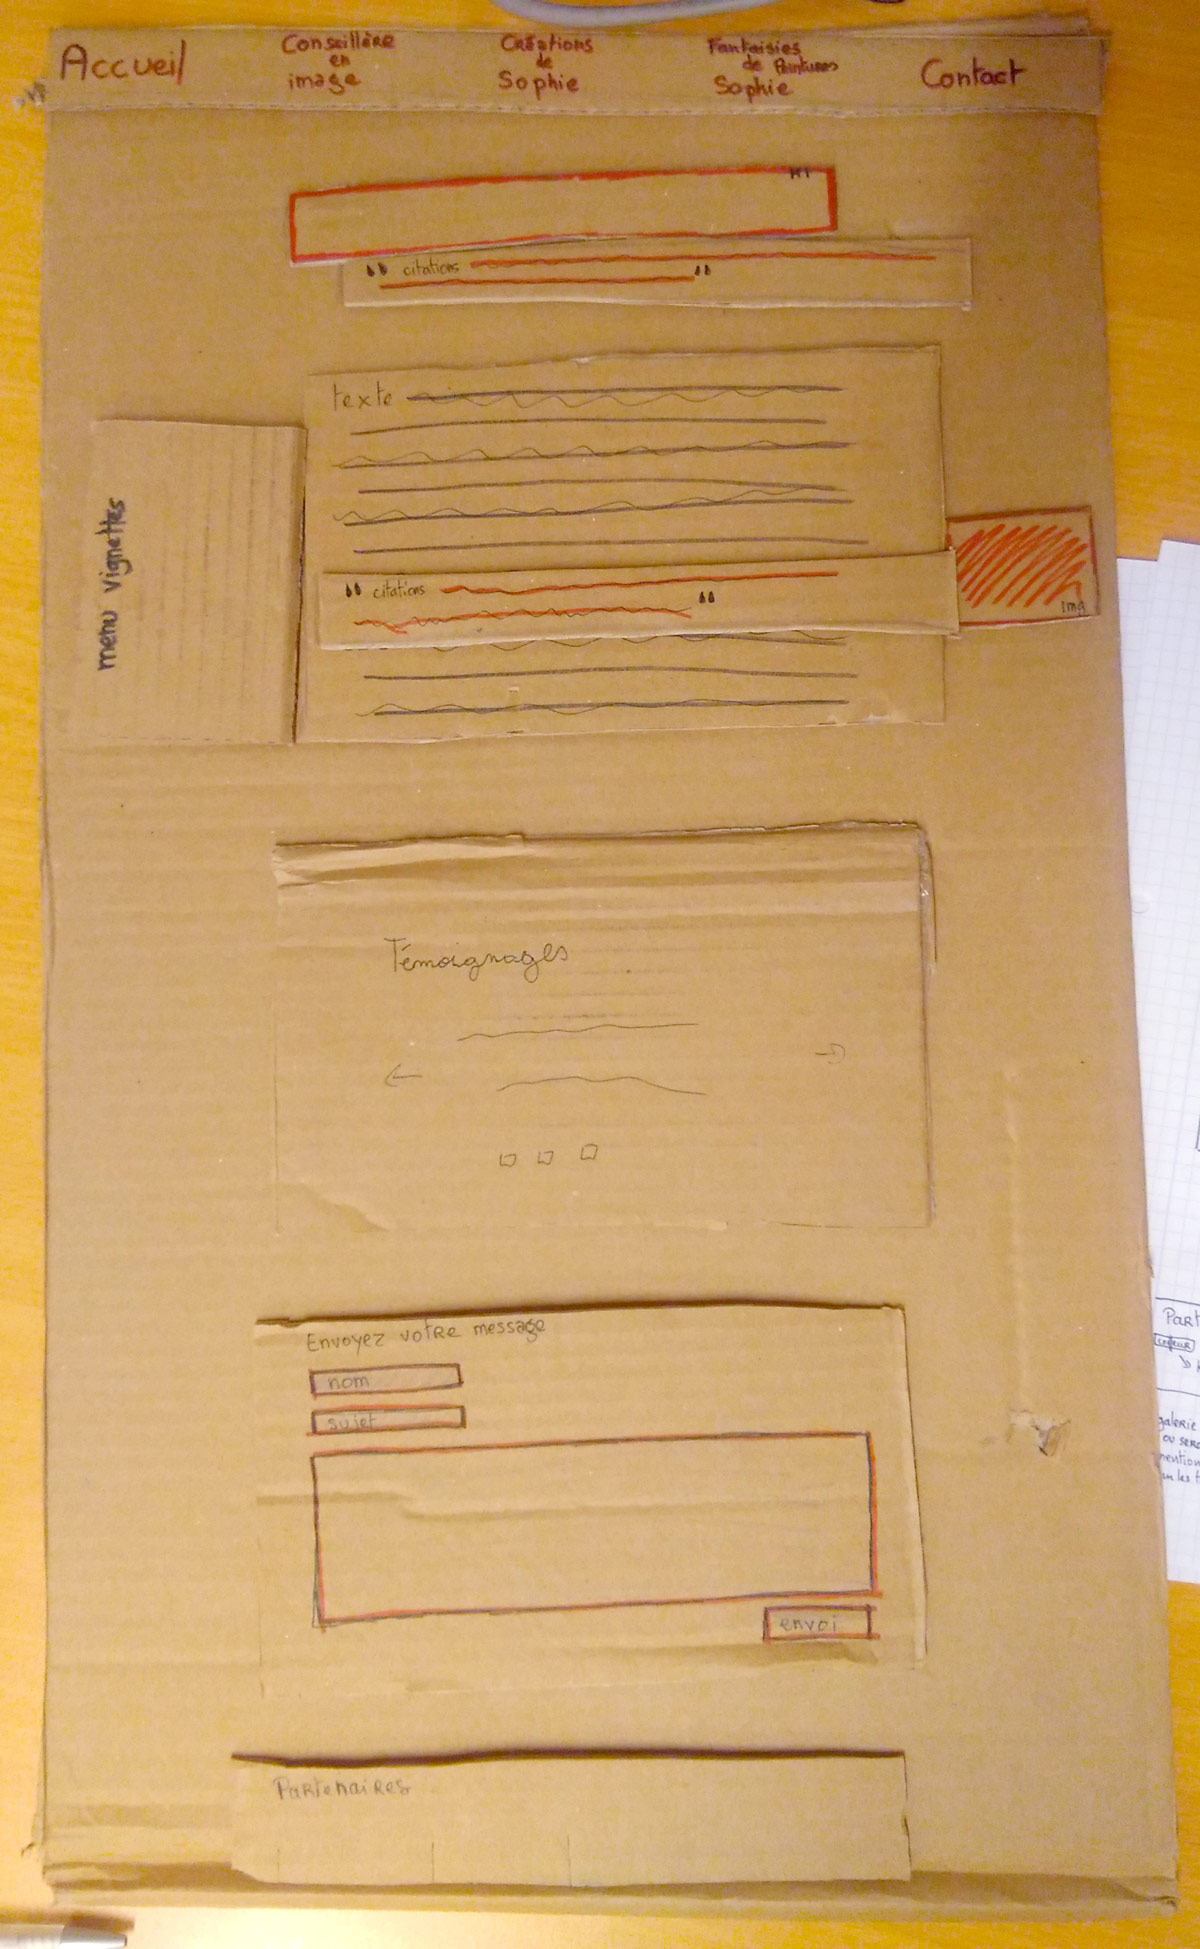 Accueil
Conseillère
en
image
Créations
de
Sophie
Fantaisies
de Peintures
Sophie
Contact
H1
" citations "
texte
" citations "
img
menu vignettes
Témoignages
← →
Envoyez votre message
nom
sujet
envoi
Partenaires
Part
galerie
ou sera
mention